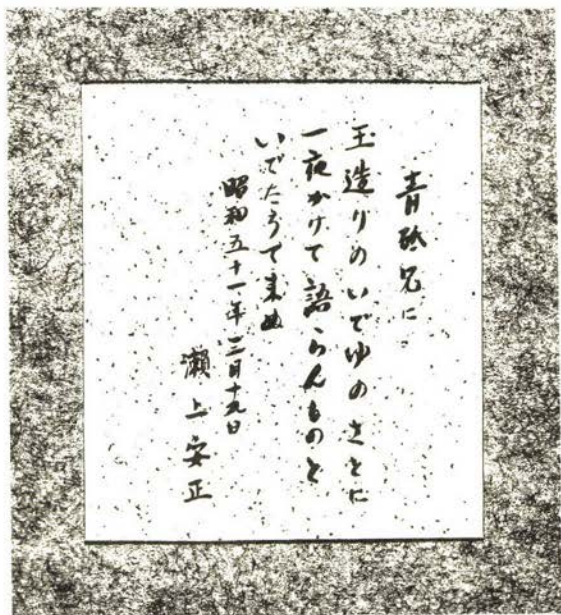 青砥兄に
玉造りのいでゆのさとに
一夜かけて語らんものと
いでたちて来ぬ
昭和五十一年二月十九日
瀬上安正